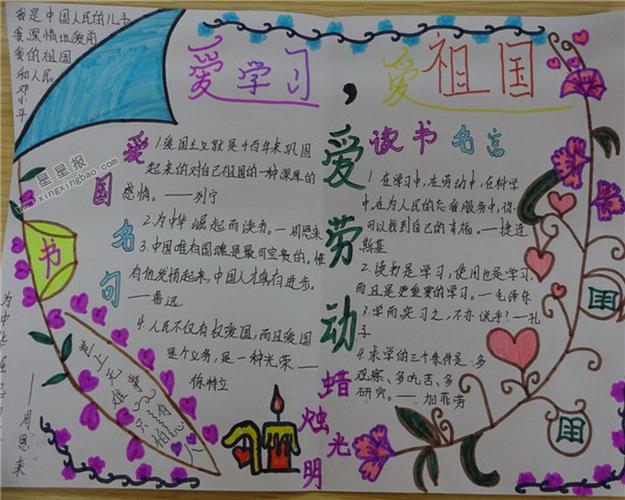 我是中国人民的儿子
我深情地爱着
我的祖国
和人民
邓小平
爱学习,爱祖国
爱劳动
爱国名句
1.爱国主义就是千百年来巩固
起来的对自己祖国的一种深厚的
感情。——列宁
2.为中华崛起而读书。——周恩来
3.中国唯有国魂是最可宝贵的,惟
有他发扬起来,中国人才有真进步。
——鲁迅
4.人民不仅有权爱国,而且爱国
是个义务,是一种光荣——
徐特立
读书名言
1.在学习中,在劳动中,在科学
中,在为人民的忘我服务中,你
可以找到自己的幸福。——捷连
斯基
2.读书是学习,使用也是学习,
而且是更重要的学习。——毛泽东
3.学而实习之,不亦说乎!——孔
子
4.求学的三个条件是:多
观察、多吃苦、多
研究。——加菲劳
书
世上无难
只怕有
人
为中华
——周恩来
蜡烛光明
田
田
星星报
www.xingxingbao.com